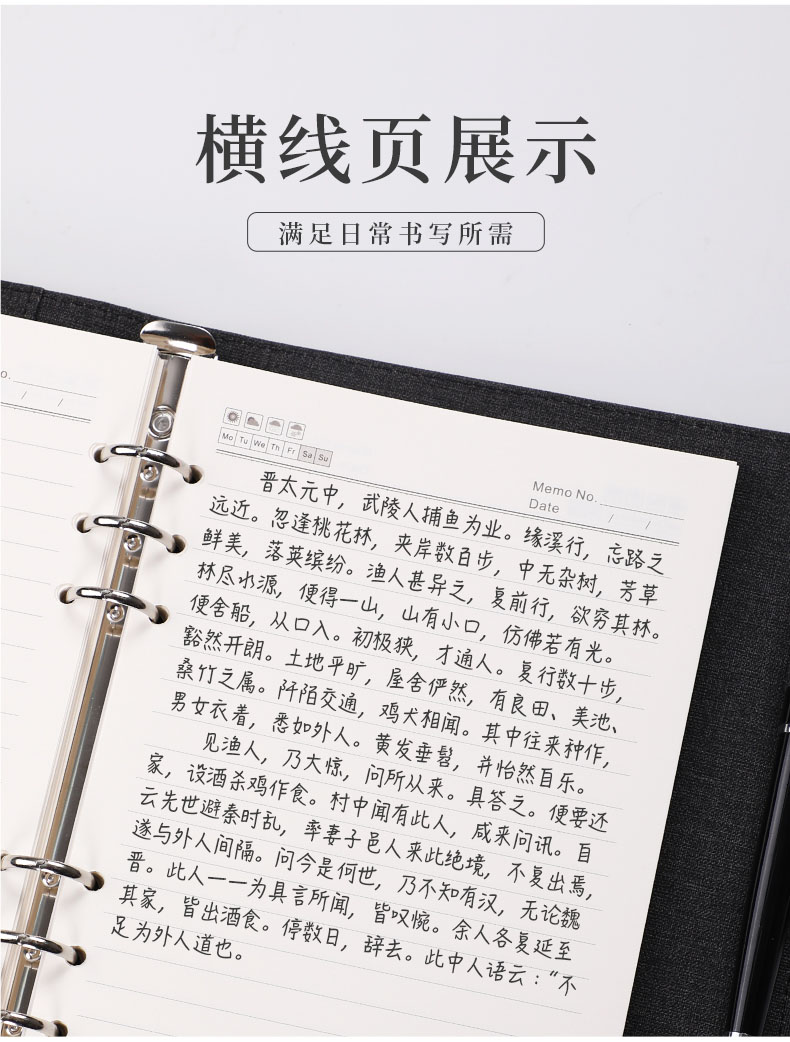 横线页展示
满足日常书写所需
o.
/ /
Mo Tu We Th Fr Sa Su
Memo No.
Date / /
晋太元中，武陵人捕鱼为业。缘溪行，忘路之
远近。忽逢桃花林，夹岸数百步，中无杂树，芳草
鲜美，落英缤纷。渔人甚异之，复前行，欲穷其林。
林尽水源，便得一山，山有小口，仿佛若有光。
便舍船，从口入。初极狭，才通人。复行数十步，
豁然开朗。土地平旷，屋舍俨然，有良田、美池、
桑竹之属。阡陌交通，鸡犬相闻。其中往来种作，
男女衣着，悉如外人。黄发垂髫，并怡然自乐。
见渔人，乃大惊，问所从来。具答之。便要还
家，设酒杀鸡作食。村中闻有此人，咸来问讯。自
云先世避秦时乱，率妻子邑人来此绝境，不复出焉，
遂与外人间隔。问今是何世，乃不知有汉，无论魏
晋。此人一一为具言所闻，皆叹惋。余人各复延至
其家，皆出酒食。停数日，辞去。此中人语云：“不
足为外人道也。